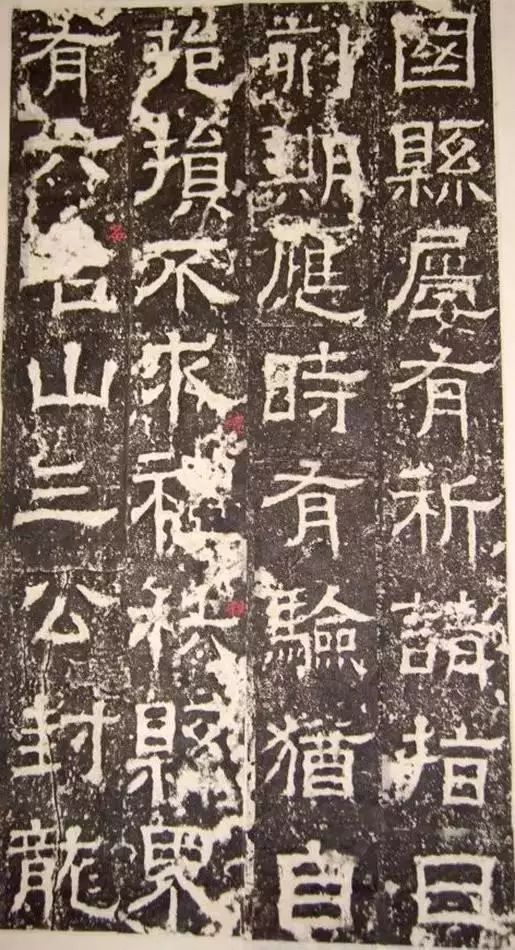 國縣屢有祈請指日
刻期應時有驗猶自
挹損不求禮秩縣界
有六名山三公封龍